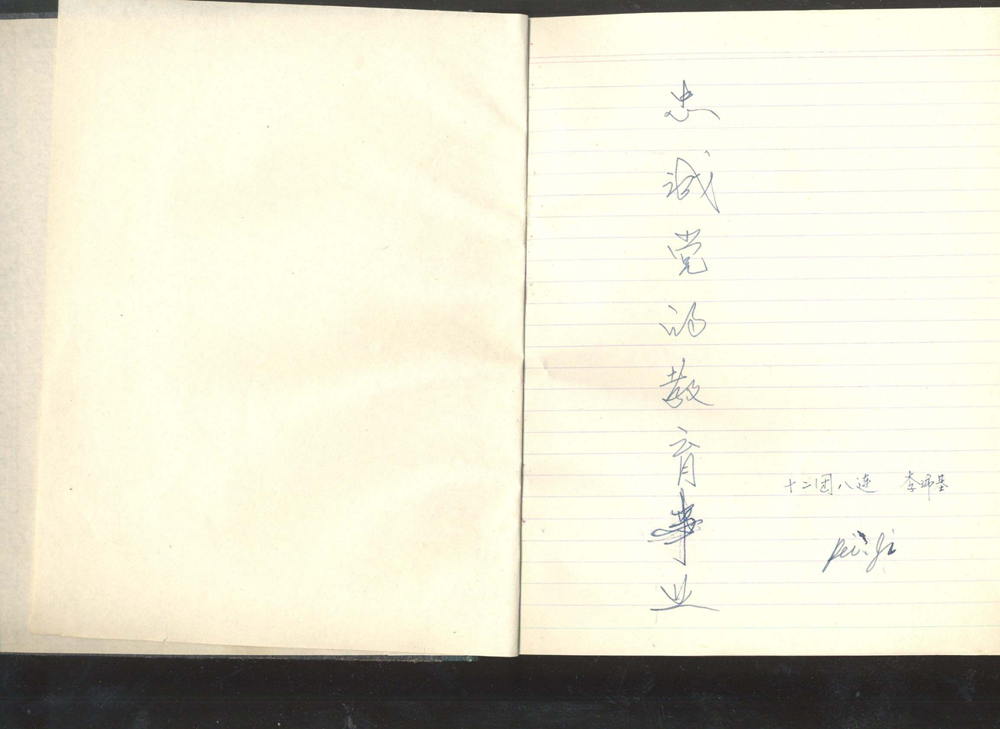 忠诚党的教育事业
十二团八连 李
Pei. Ji